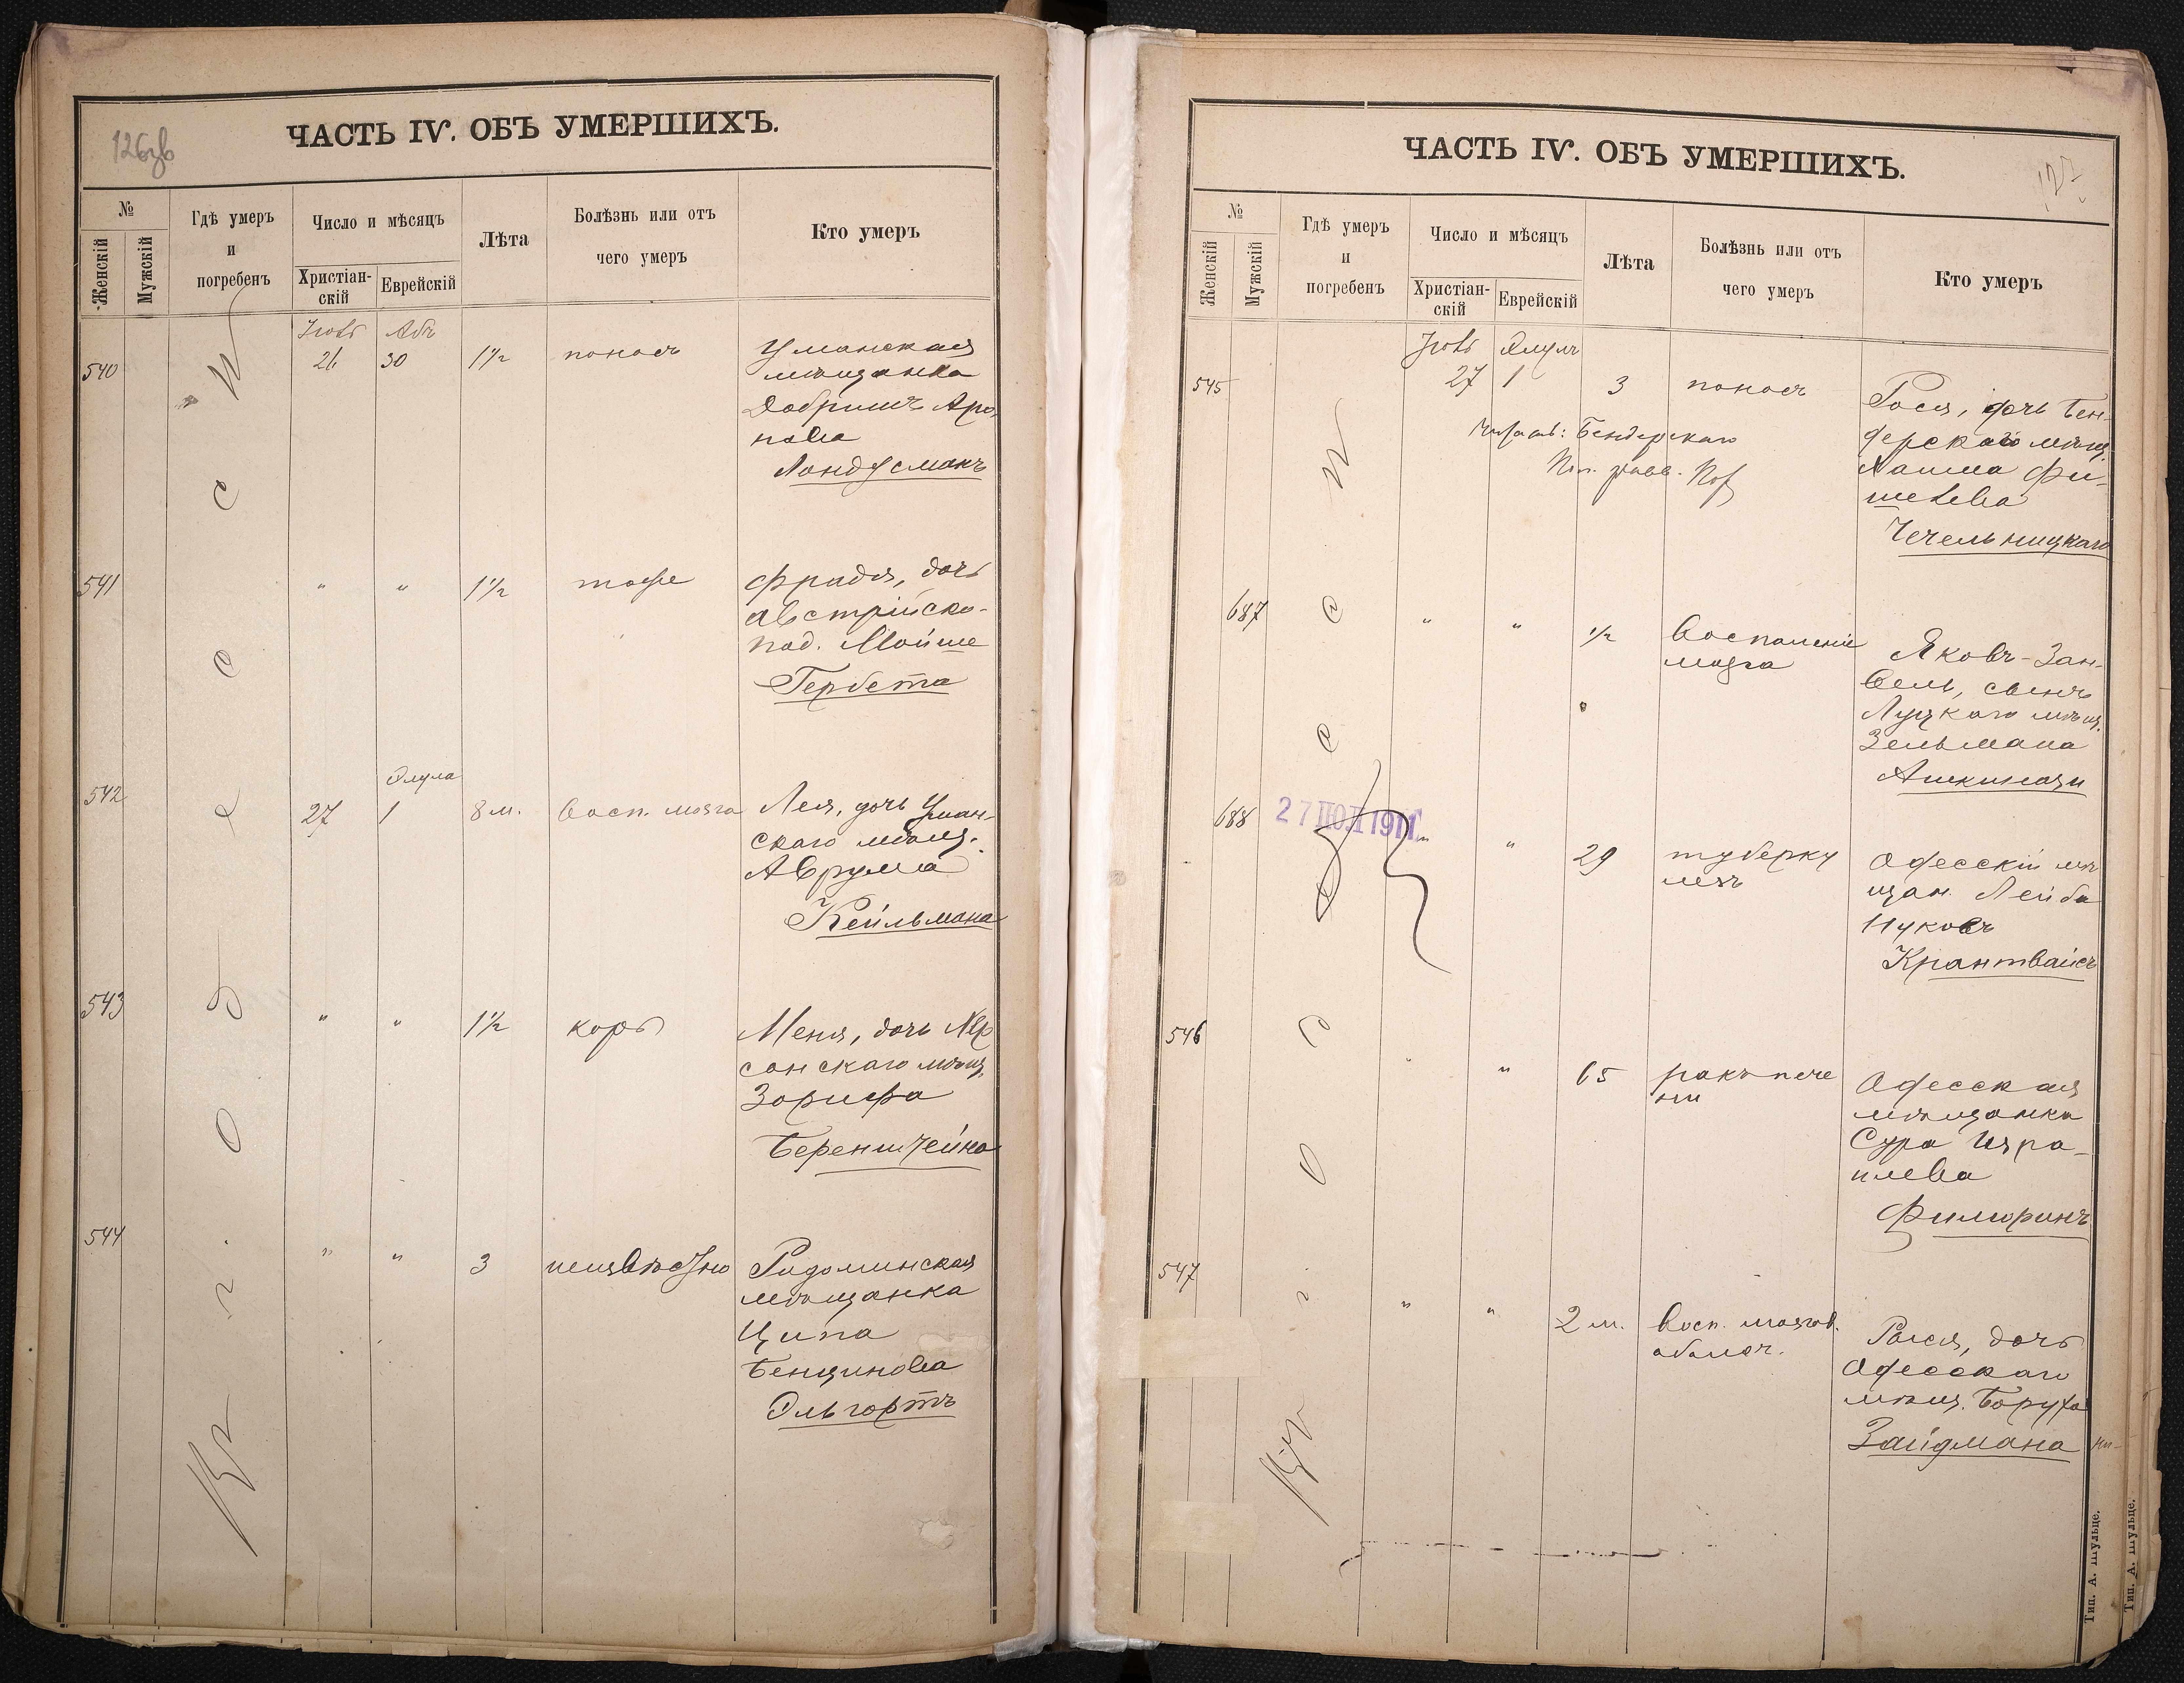 126об
ЧАСТЬ IV. ОБЪ УМЕРШИХЪ.
№
Женскій
Мужскій
Гдѣ умеръ
и
погребенъ
Число и мѣсяцъ
Христіан-
скій
Еврейскій
Лѣта
Болѣзнь или отъ
чего умеръ
Кто умеръ
Іюль Абъ
540 26 30 1½ поносъ Уманская
мѣщанка
Добришъ Аро-
нова
Ландусманъ
541 " " 1½ тоже Фридя, дочь
австрійско-
под. Мойше
Гербета
Элула
542 27 1 8 м. восп. мозга Лея, дочь Уман-
скаго мѣщ.
Аврума
Кейльмана
543 " " 1½ корь Меня, дочь Хер
сонскаго мѣщ.
Зорифа
Беренштейна
544 " " 3 неизвѣстно Радоминская
мѣщанка
Ципа
Бенционова
Эльгортъ
въ г. Одессѣ
127
ЧАСТЬ IV. ОБЪ УМЕРШИХЪ.
№
Женскій
Мужскій
Гдѣ умеръ
и
погребенъ
Число и мѣсяцъ
Христіан-
скій
Еврейскій
Лѣта
Болѣзнь или отъ
чего умеръ
Кто умеръ
Іюль Элулъ
545 27 1 3 поносъ Рося, дочь Бен-
дерскаго мѣщ.
Хаима Фи-
шелева
Чечельницкаго
Бендерскаго
687 " " ½ Воспаленіе
мозга
Яковъ-Зан-
вель, сынъ
Луцкаго мѣщ.
Зельмана
Ашкинази
688 27 ІЮЛ 1911 " " 29 туберку
лезъ
Одесскій мѣ
щан. Лейба
Нуховъ
Крантвайсъ
546 " " 65 ракъ пече
ни
Одесская
мѣщанка
Сура Изра-
илева
Филюринъ
547 " " 2 м. Восп. мозгов.
оболоч.
Рася, дочь
Одесскаго
мѣщ. Боруха
Зайдмана
въ г. Одессѣ
Тип. А. Шульце.
Тип. А. Шульце.